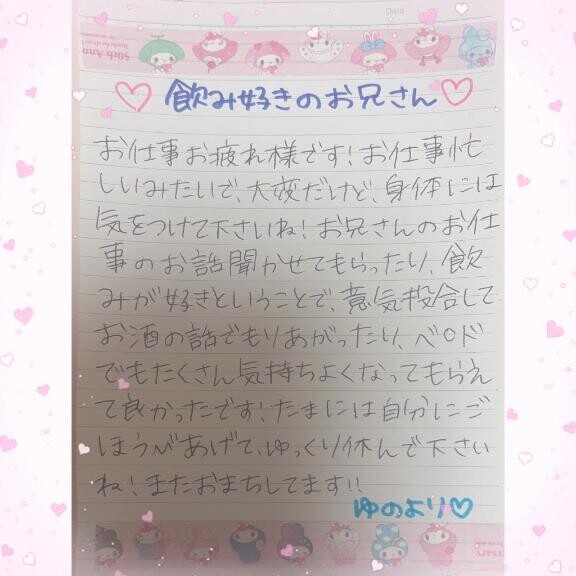 Date
50th Ann
♡飲み好きのお兄さん♡
お仕事お疲れ様です!お仕事忙
しいみたいで、大変だけど、身体には
気をつけて下さいね!お兄さんのお仕
事のお話聞かせてもらったり、飲
みが好きということで、意気投合して
お酒の話でもりあがったり、ベ○ド
でもたくさん気持ちよくなってもらえ
て良かったです!たまには自分にご
ほうびあげて、ゆっくり休んで下さい
ね!またおまちしてます!!
ゆのより♡